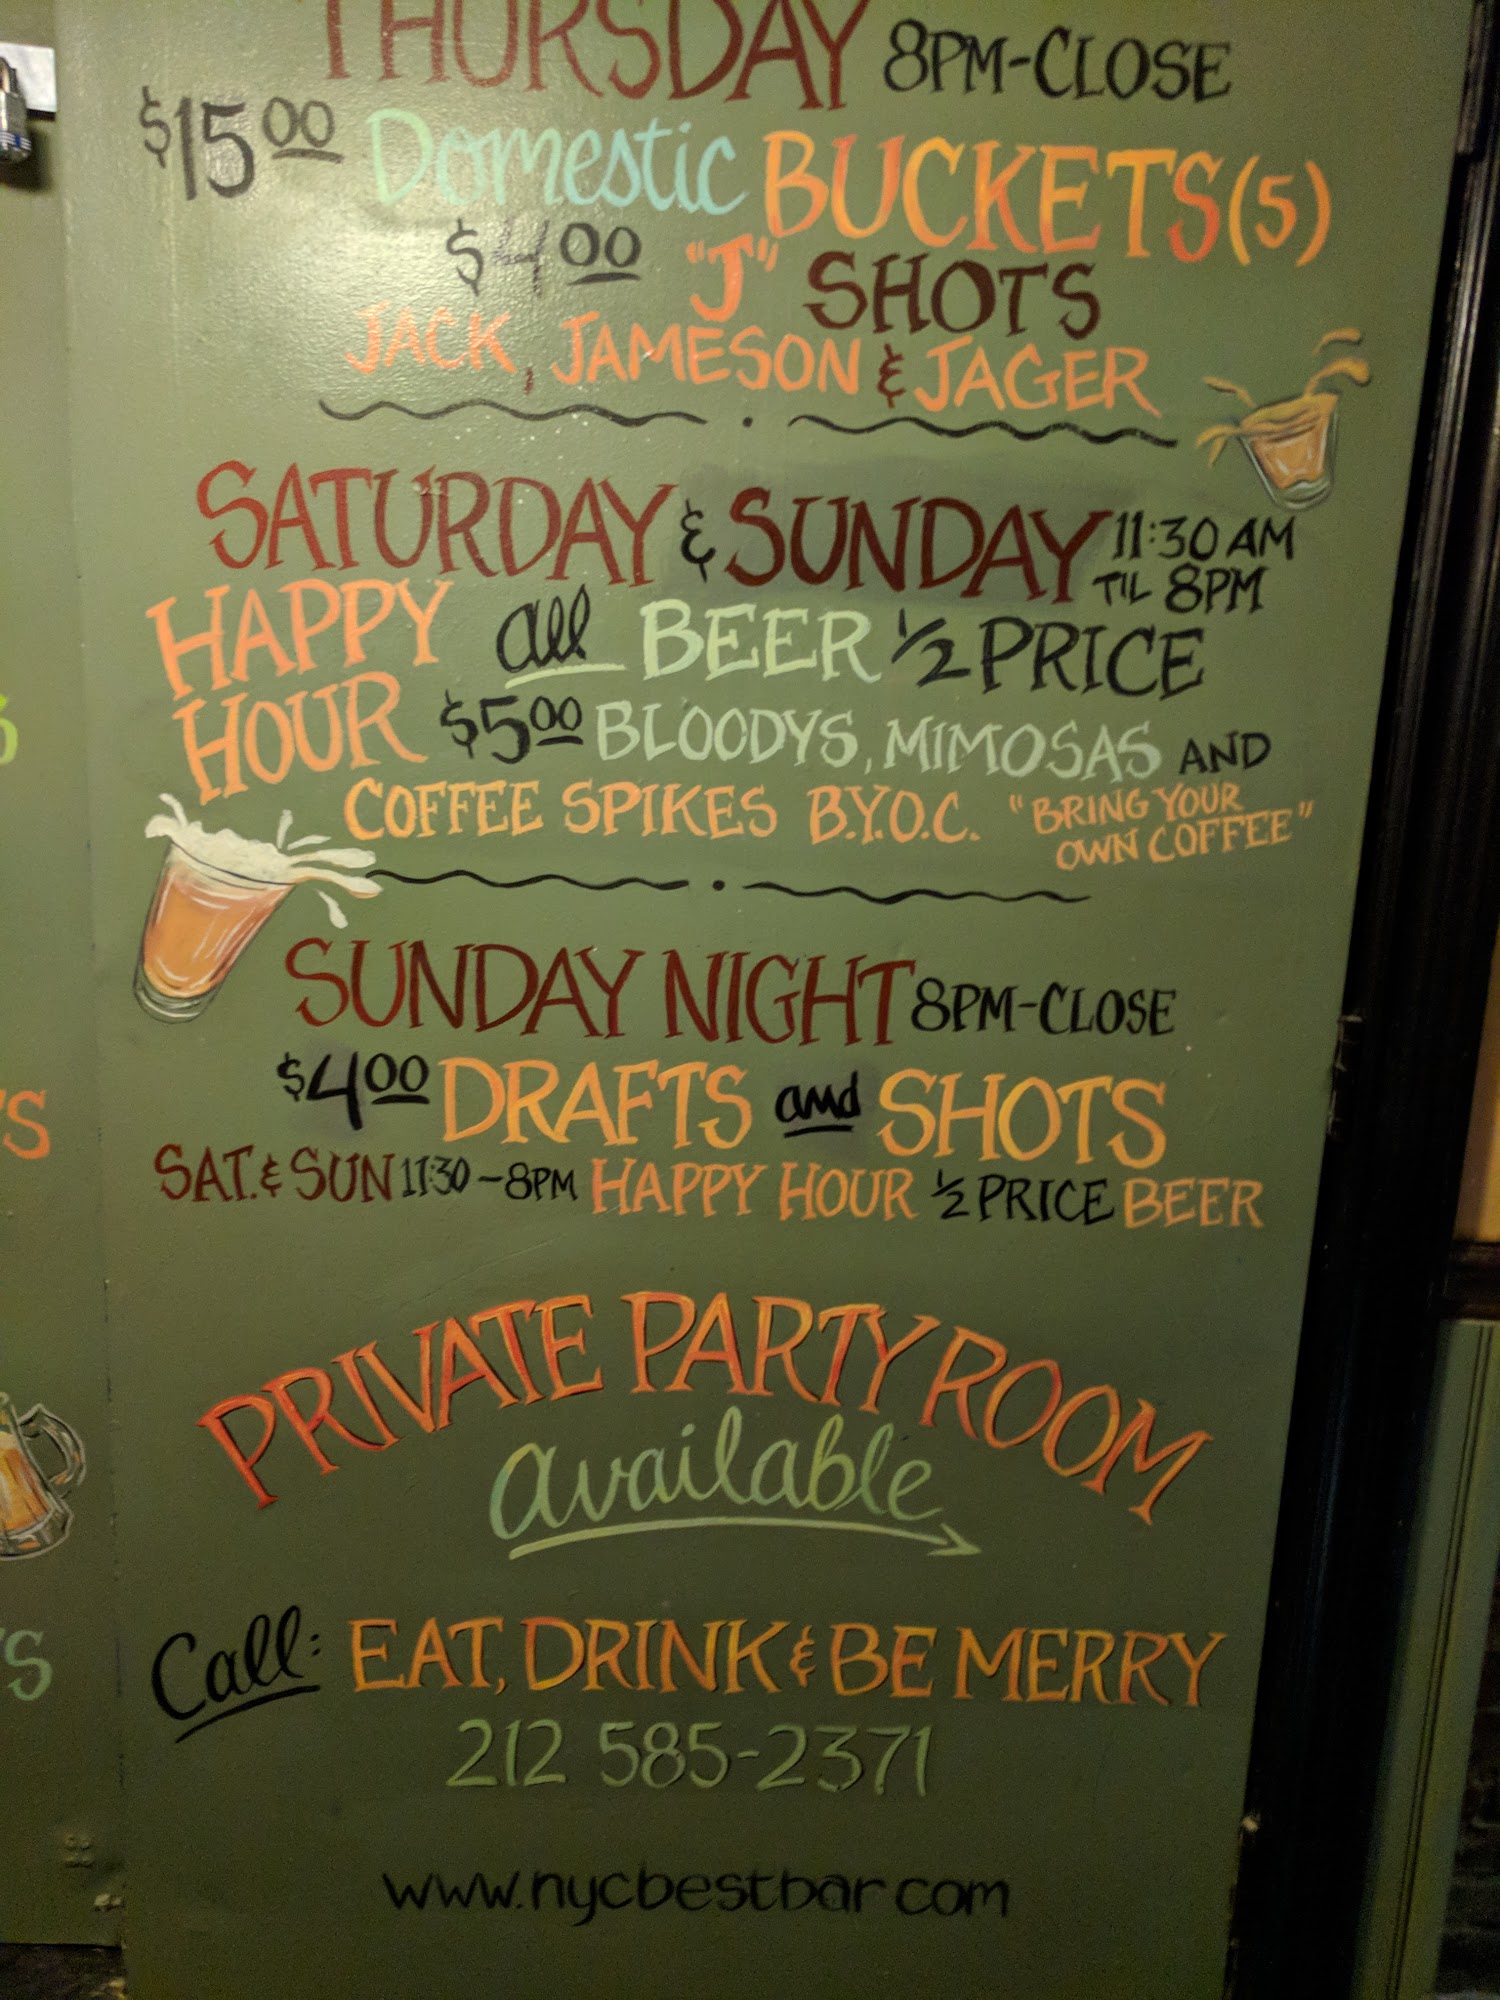 THURSDAY 8PM-CLOSE
$15.00 Domestic BUCKETS(5)
$4.00 "J" SHOTS
JACK, JAMESON & JAGER
SATURDAY & SUNDAY 11:30 AM
TIL 8PM
HAPPY HOUR all BEER 1/2 PRICE
$5.00 BLOODYS, MIMOSAS AND
COFFEE SPIKES B.Y.O.C. "BRING YOUR
OWN COFFEE"
SUNDAY NIGHT 8PM-CLOSE
$4.00 DRAFTS and SHOTS
SAT. & SUN 11:30-8PM HAPPY HOUR 1/2 PRICE BEER
PRIVATE PARTY ROOM
available
Call: EAT, DRINK & BE MERRY
212 585-2371
www.nycbestbar.com